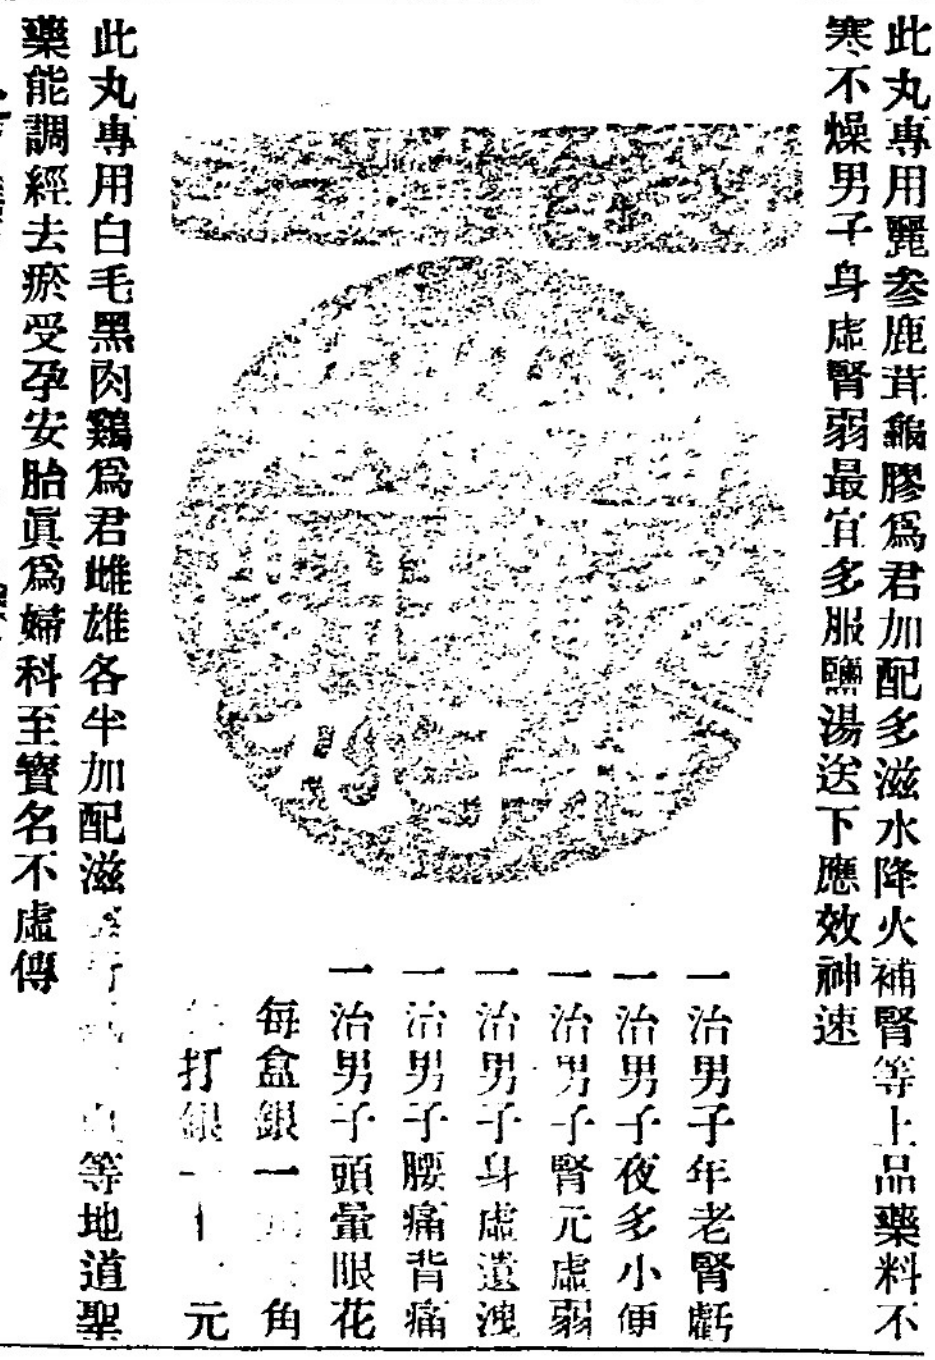 此丸專用麗参鹿茸龜膠爲君加配多滋水降火補腎等上品藥料不
寒不燥男子身虛腎弱最宜多服鹽湯送下應效神速
一治男子年老腎虧
一治男子夜多小便
一治男子腎元虛弱
一治男子身虛遺洩
一治男子腰痛背痛
一治男子頭暈眼花
每盒銀一角
打銀一元
此丸專用白毛黑肉鷄爲君雌雄各半加配滋等地道聖
藥能調經去瘀受孕安胎眞爲婦科至寳名不虛傳